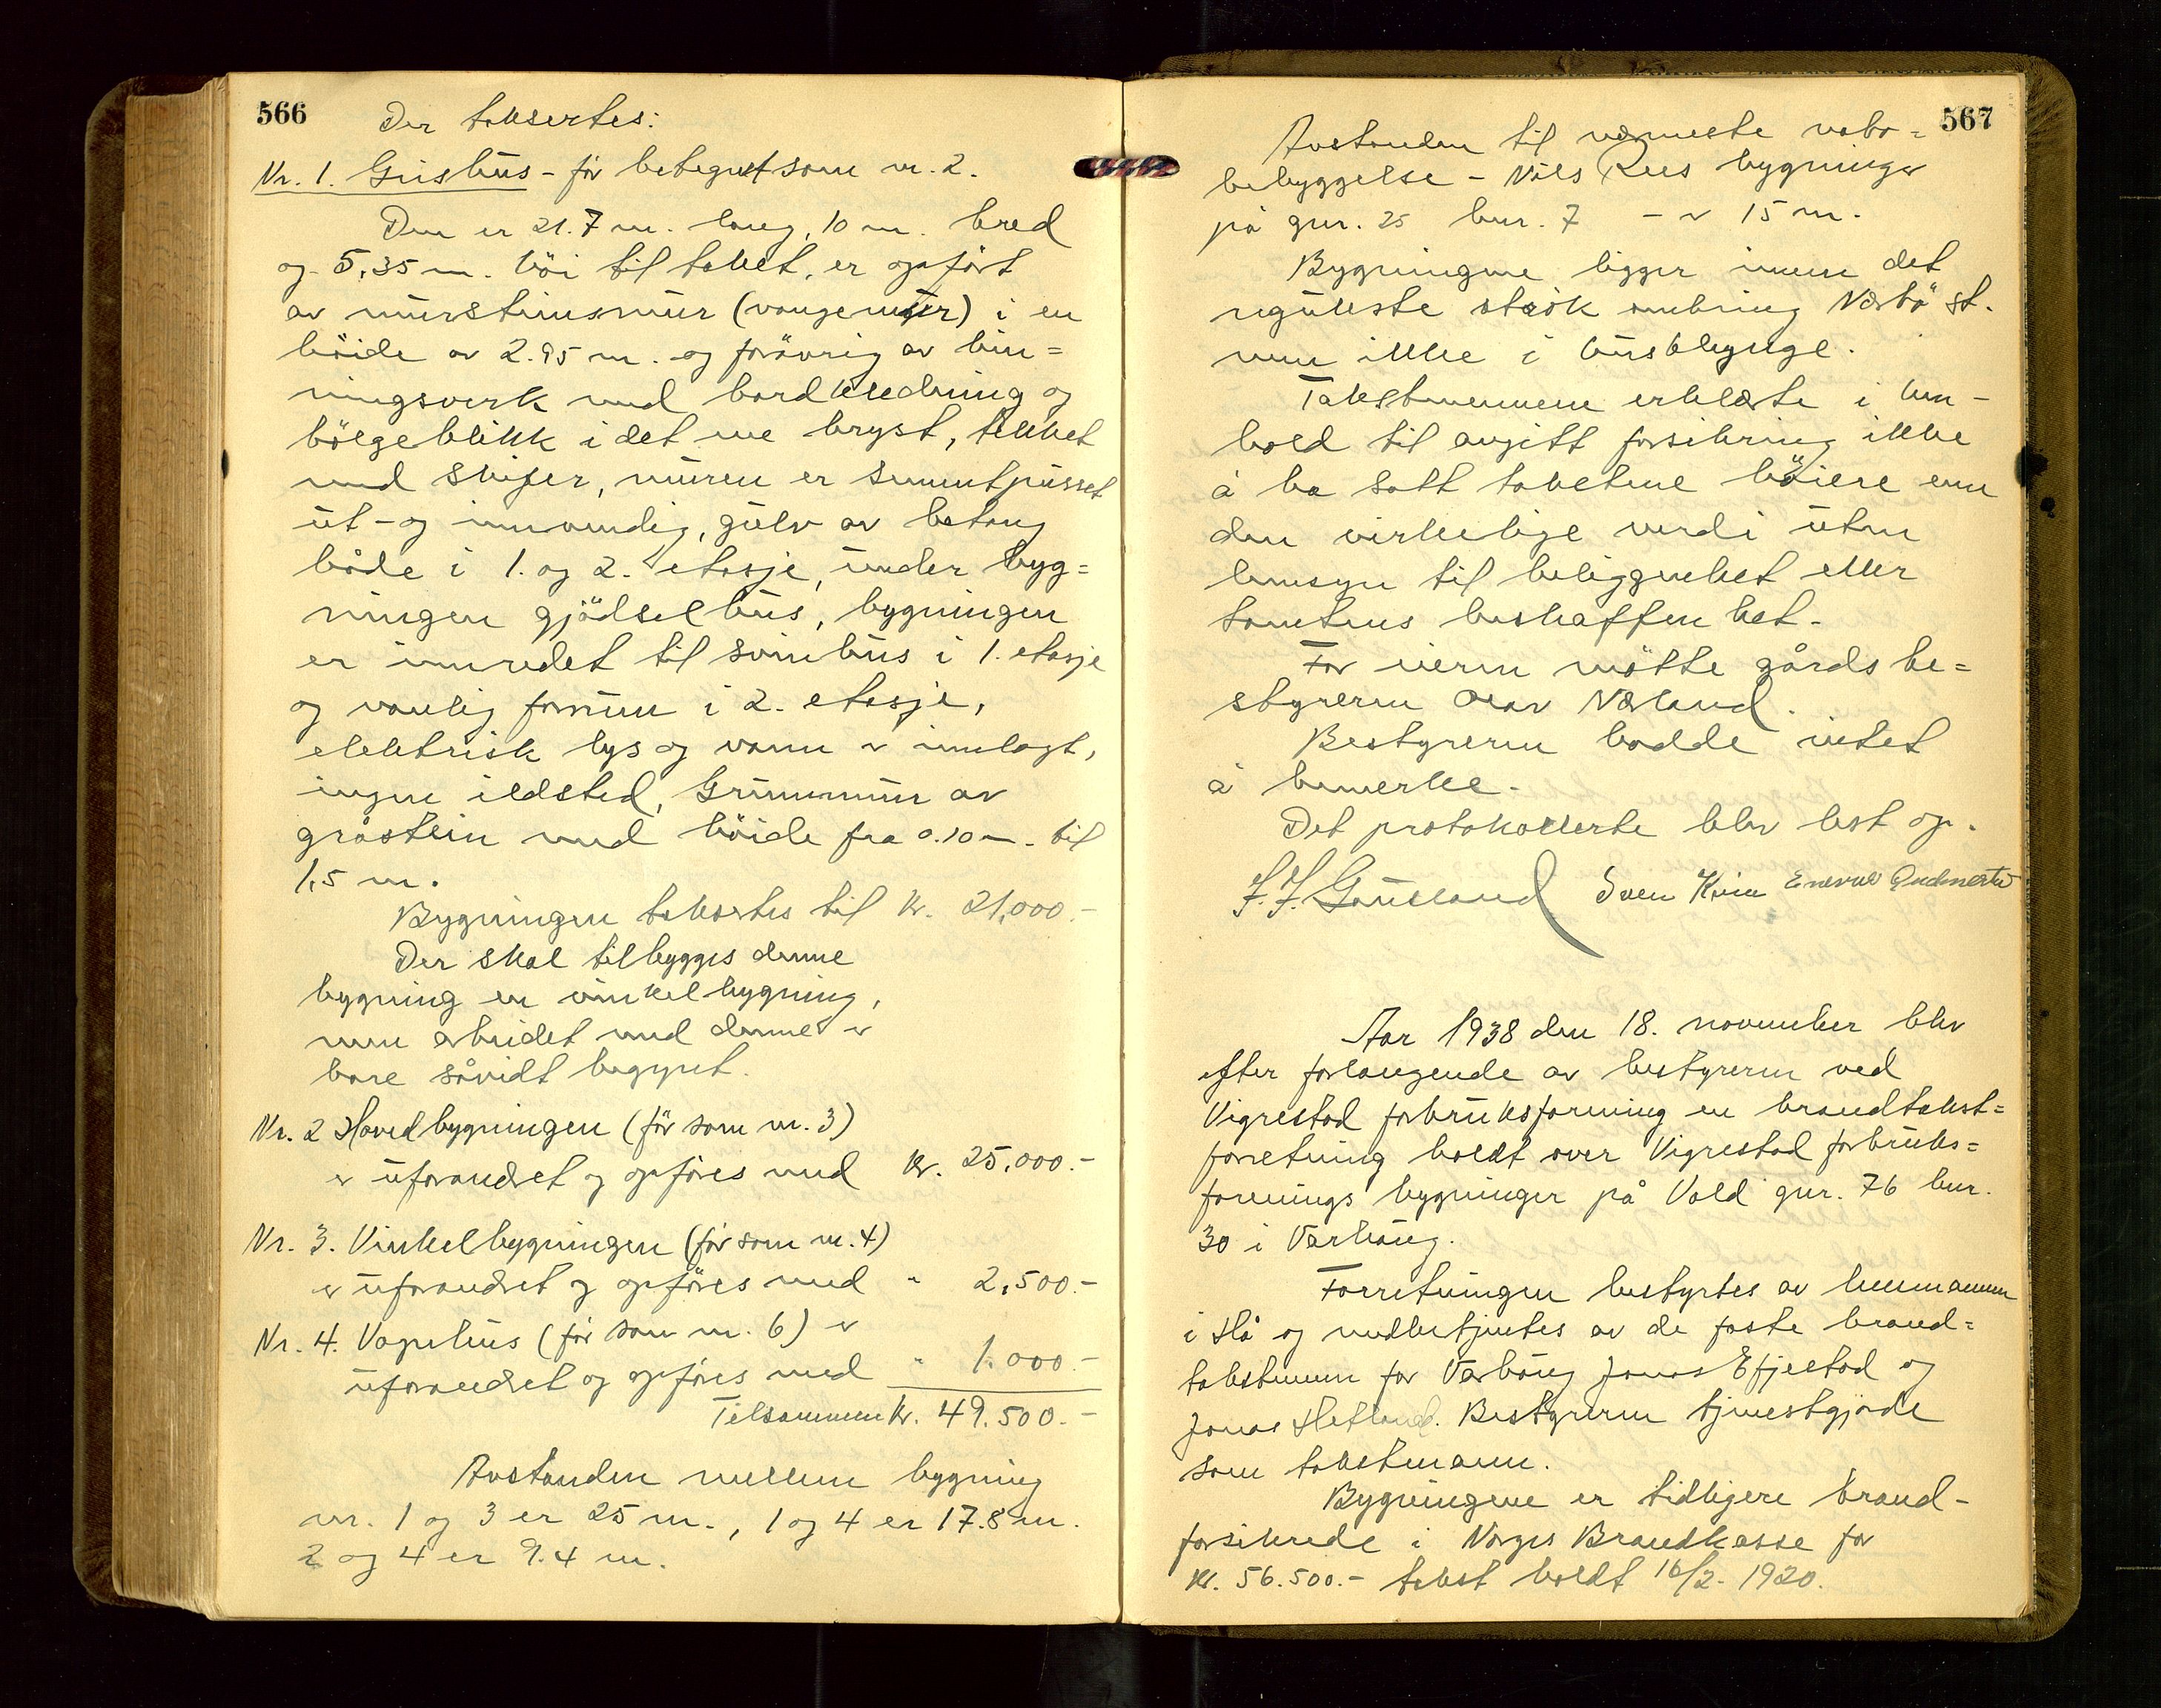 566
Der taksertes:
Nr. 1. Grishus - før betegnet som nr. 2.
Den er 21.7 m. lang, 10 m. bred
og 5,35 m. höi til taket, er opført
av murstensmur (vangemur) i en
höide av 2.95 m. og forövrig av bin=
ningsverk med bordkledning og
bölgeblikk i det ene bryst, tekket
med skifer, muren er sementpusset
ut- og innvendig, gulv av betong
både i 1. og 2. etasje, under byg=
ningen gjödselhus, bygningen
er innredet til svinhus i 1. etasje
og vanlig forrum i 2. etasje,
elektrisk lys og vann er innlagt,
ingen ildsted, Grunnmur av
gråstein med höide fra 0.10 m. til
1,5 m.
Bygningen takseres til Kr. 21,000.-
Der skal tilbygges denne
bygning en vinkelbygning,
men arbeidet med denne er
bare såvidt begynt.
Nr. 2 Hovedbygningen (för som nr. 3)
er uforandret og opföres med Kr. 25,000.-
Nr. 3. Vinkelbygningen (för som nr. 4)
er uforandret og opföres med " 2,500.-
Nr. 4. Vognhus (för som nr. 6) er
uforandret og opföres med " 1.000.-
Tilsammen Kr. 49.500.-
Avstanden mellem bygning
nr. 1 og 3 er 25 m., 1 og 4 er 17.8 m.
2 og 4 er 9.4 m.
567
Avstanden til nærmeste nabo=
bebyggelse - Nils Rees bygninger
på gnr. 25 bnr. 7 - er 15 m.
Bygningene ligger innen det
regulerte strök omkring Nærbö st.
men ikke i husklynge.
Takstmennene erklærte i hen-
hold til avgitt forsikring ikke
å ha satt takstene höiere enn
den virkelige verdi uten
hensyn til beliggenhet eller
tomtens beskaffenhet.
For eieren mötte gårdsbe=
styreren Olav Næland.
Bestyreren hadde intet
å bemerke.
Det protokollerte blev lest op.
J. J. Gausland Sven Kvia
Aar 1938 den 18. november blev
efter forlangende av bestyreren ved
Vigrestad forbruksforening en brandtakst=
forretning holdt over Vigrestad forbruks=
forenings bygninger på Vold gnr. 76 bnr.
30 i Varhaug.
Forretningen bestyrtes av lensmannen
i Hå og medbetjentes av de faste brand=
takstmenn for Varhaug Jonas Efjestad og
Jonas Hetland. Bestyreren tjenestgjorde
som takstmann.
Bygningene er tidligere brand-
forsikrede i Norges Brandkasse for
kr. 56.500.- takst holdt 16/2. 1920.